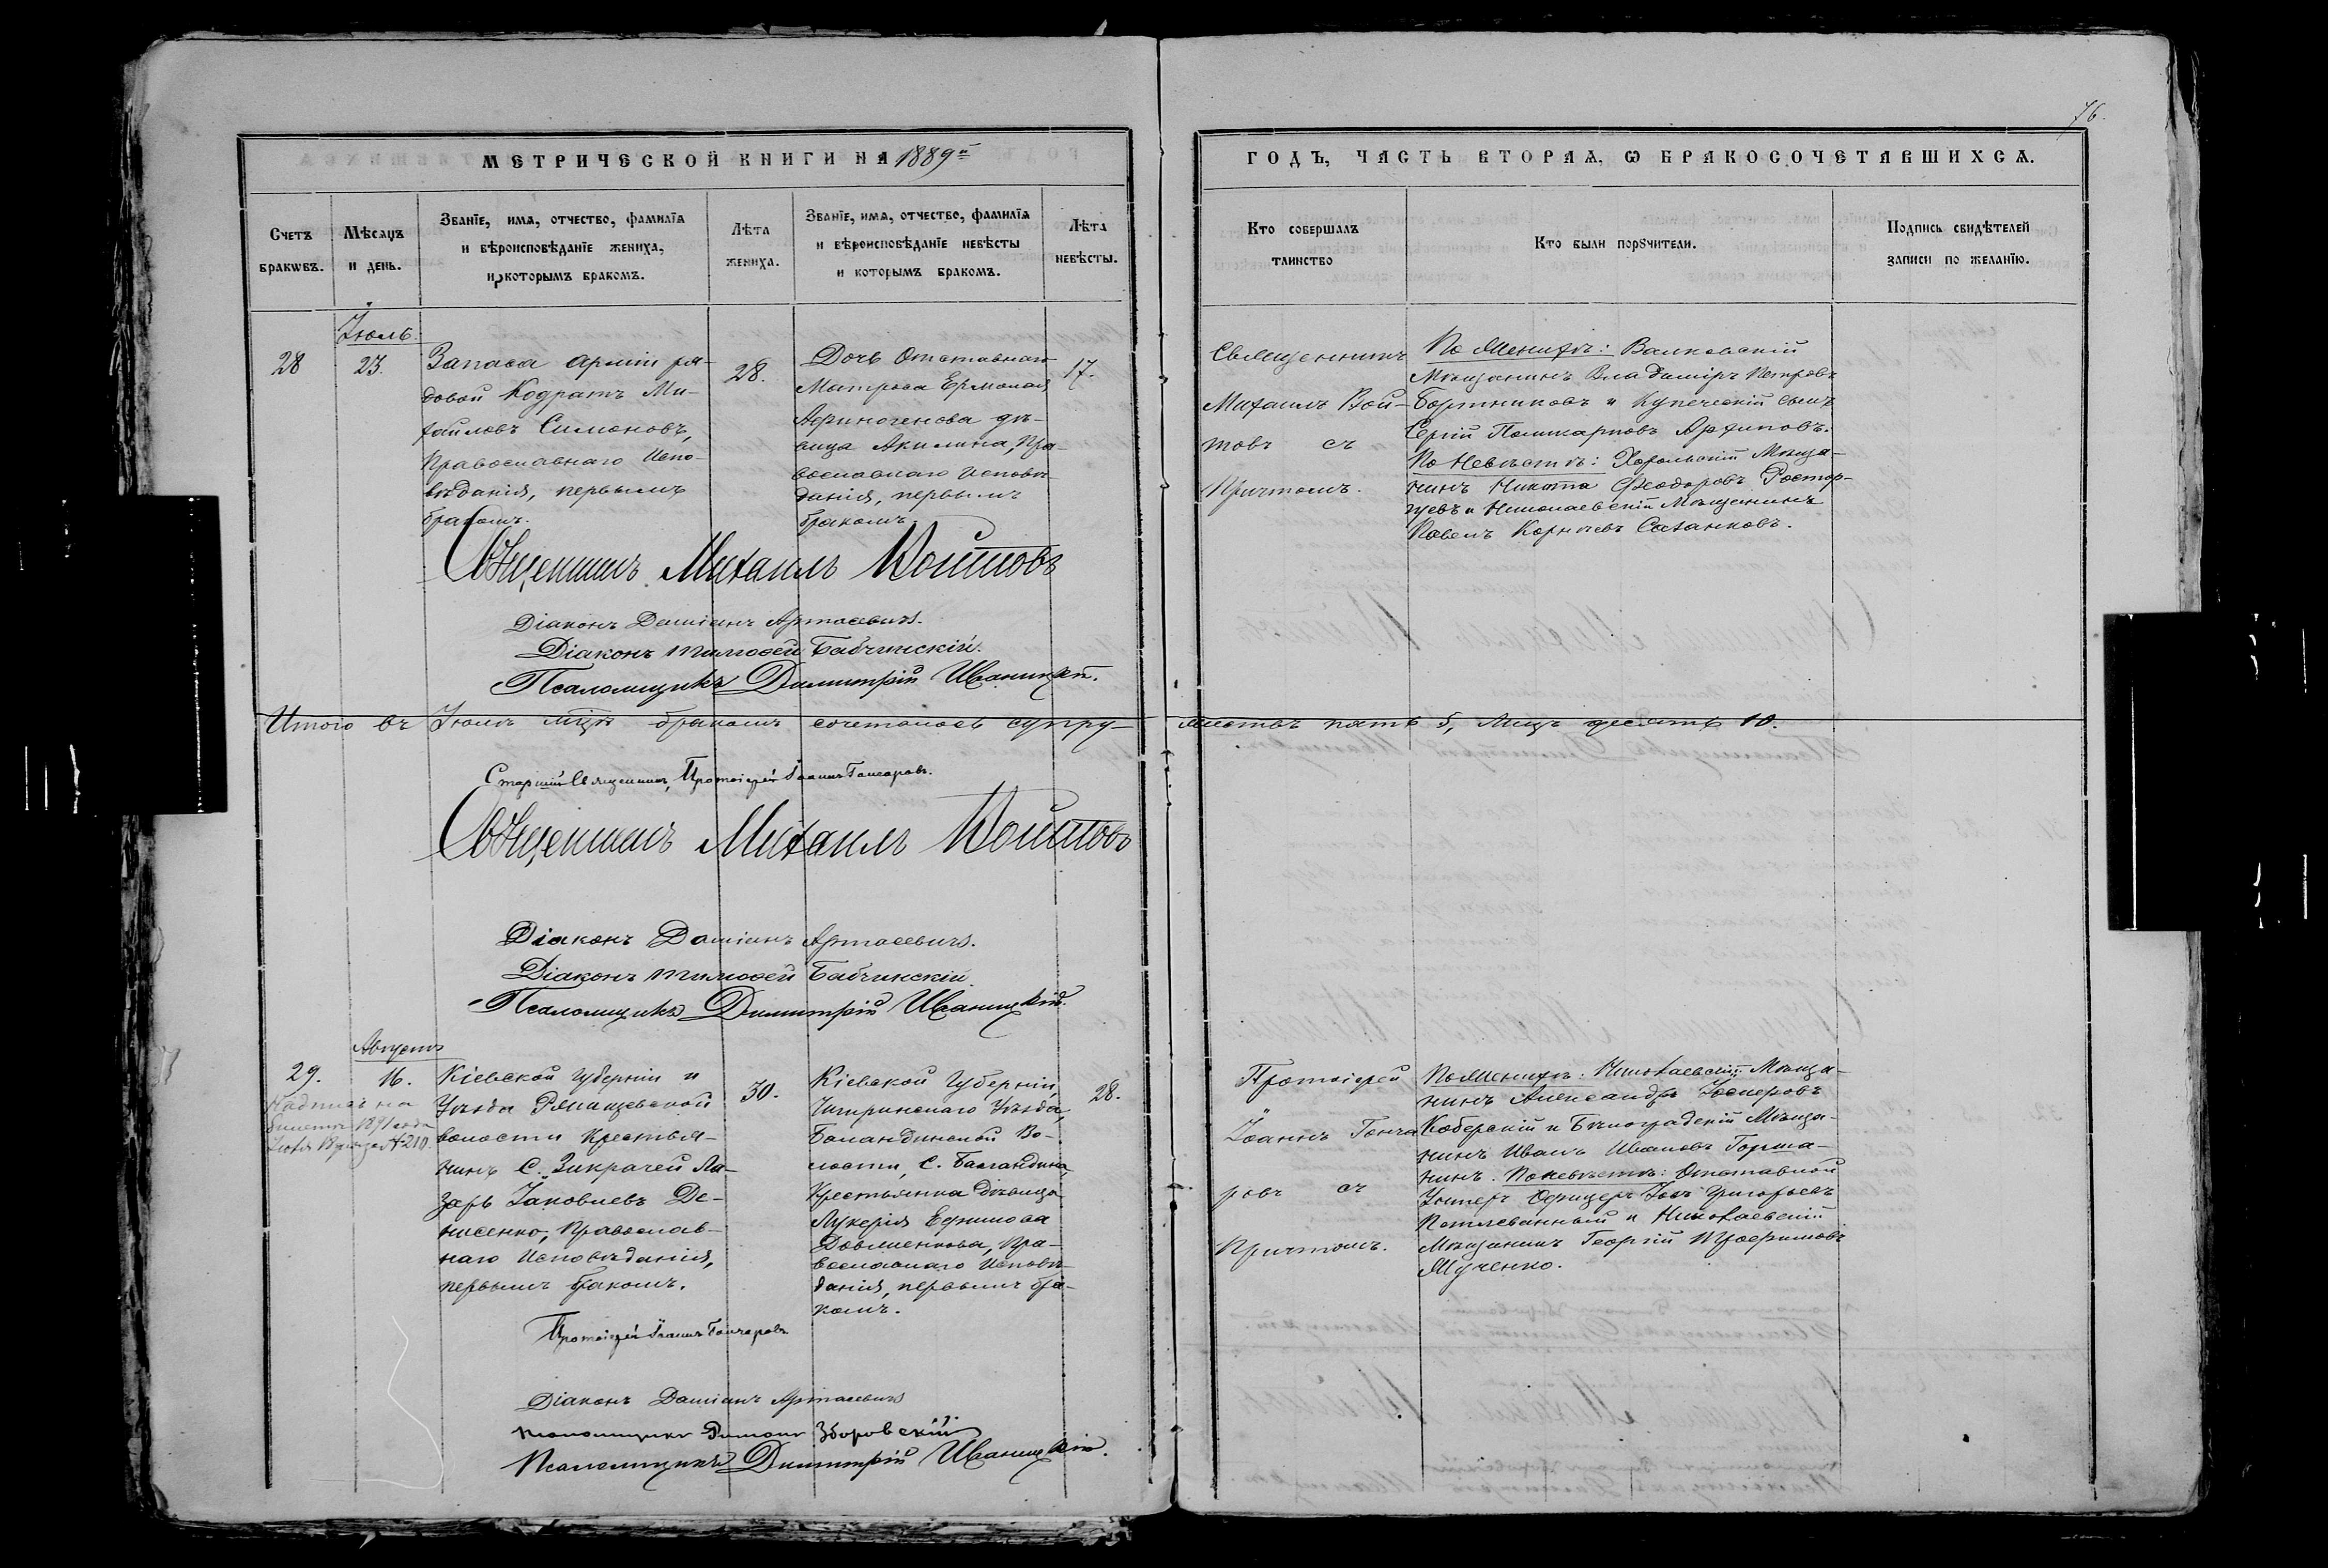 76.
МЕТРИЧЕСКОЙ КНИГИ НА 1889й
ГОДЪ, ЧАСТЬ ВТОРАѦ, Ѡ БРАКОСОЧЕТАВШИХСѦ.
Счетъ браковъ.
Мѣсяцъ и день.
Званїе, имя, отчество, фамилїя
и вѣроисповѣданїе жениха,
и которымъ бракомъ.
Лѣта
жениха.
Званїе, имя, отчество, фамилїя
и вѣроисповѣданїе невѣсты
и которымъ бракомъ.
Лѣта
невѣсты.
Кто совершалъ
таинство
Кто были порꙋчители.
Подпись свидѣтелей
записи по желанїю.
Іюль.
28
23.
Запаса арміи ря-
довой Кодратъ Ми-
хайловъ Симоновъ,
Православнаго Испо-
вѣданія, первымъ
бракомъ.
28.
Дочь Отставнаго
Матроса Ермолая
Афиногенова дѣ-
вица Акилина, Пра-
вославнаго Исповѣ-
данія, первымъ
бракомъ.
17.
Священникъ
Михаилъ Вой-
товъ съ
Причтомъ.
По Женихѣ: Валковскій
Мѣщанинъ Владиміръ Петровъ
Бортниковъ и Купеческій сынъ
Сергій Поликарповъ Архиповъ.
По Невѣстѣ: Хорольскій Мѣща-
нинъ Никита Ѳеодоровъ Растор-
гуевъ и Николаевскій Мѣщанинъ
Павелъ Корніевъ Саханковъ.
Священникъ Михаилъ Войтовъ
Діаконъ Даміанъ Артасевичъ.
Діаконъ Тимоѳей Бабчинскій.
Псаломщикъ Димитрій Иваницкій.
Итого въ Іюлѣ мцѣ бракомъ сочеталось супру-
жествъ пять 5, Лицъ десять 10.
Старшій Священникъ, Протоіерей Іоаннъ Гончаровъ.
Священникъ Михаилъ Войтовъ
Діаконъ Даміанъ Артасевичъ.
Діаконъ Тимоѳей Бабчинскій
Псаломщикъ Димитрій Иваницкій.
Августъ
29.
16.
Надпись на
билетѣ 1891 года
№ 210.
Кіевской Губерніи и
Уѣзда Рянищевской
волости Крестья-
нинъ С. Зикрачей Ла-
зарь Іаковлевъ Де-
нисенко, Православ-
наго Исповѣданія,
первымъ бракомъ.
30.
Кіевской Губерніи,
Чигиринскаго Уѣзда,
Баландинской Во-
лости, С. Баландина,
Крестьянка дѣвица
Лукерія Ефимова
Довлиенкова, Пра-
вославнаго Исповѣ-
данія, первымъ бра-
комъ.
28.
Протоіерей
Іоаннъ Гонча
ровъ съ
Причтомъ.
По Женихѣ: Николаевскій Мѣща-
нинъ Александръ Іосифовъ
Коберскій и Бѣлоградскій Мѣща-
нинъ Иванъ Ивановъ Горша-
нинъ. По невѣстѣ: Отставной
Унтеръ Офицеръ Іовъ Григорьевъ
и Николаевскій
Мѣщанинъ Георгій
Мученко.
Протоіерей Іоаннъ Гончаровъ
Діаконъ Даміанъ Артасевичъ
Зборовскій.
Псаломщикъ Димитрій Иваницкій.